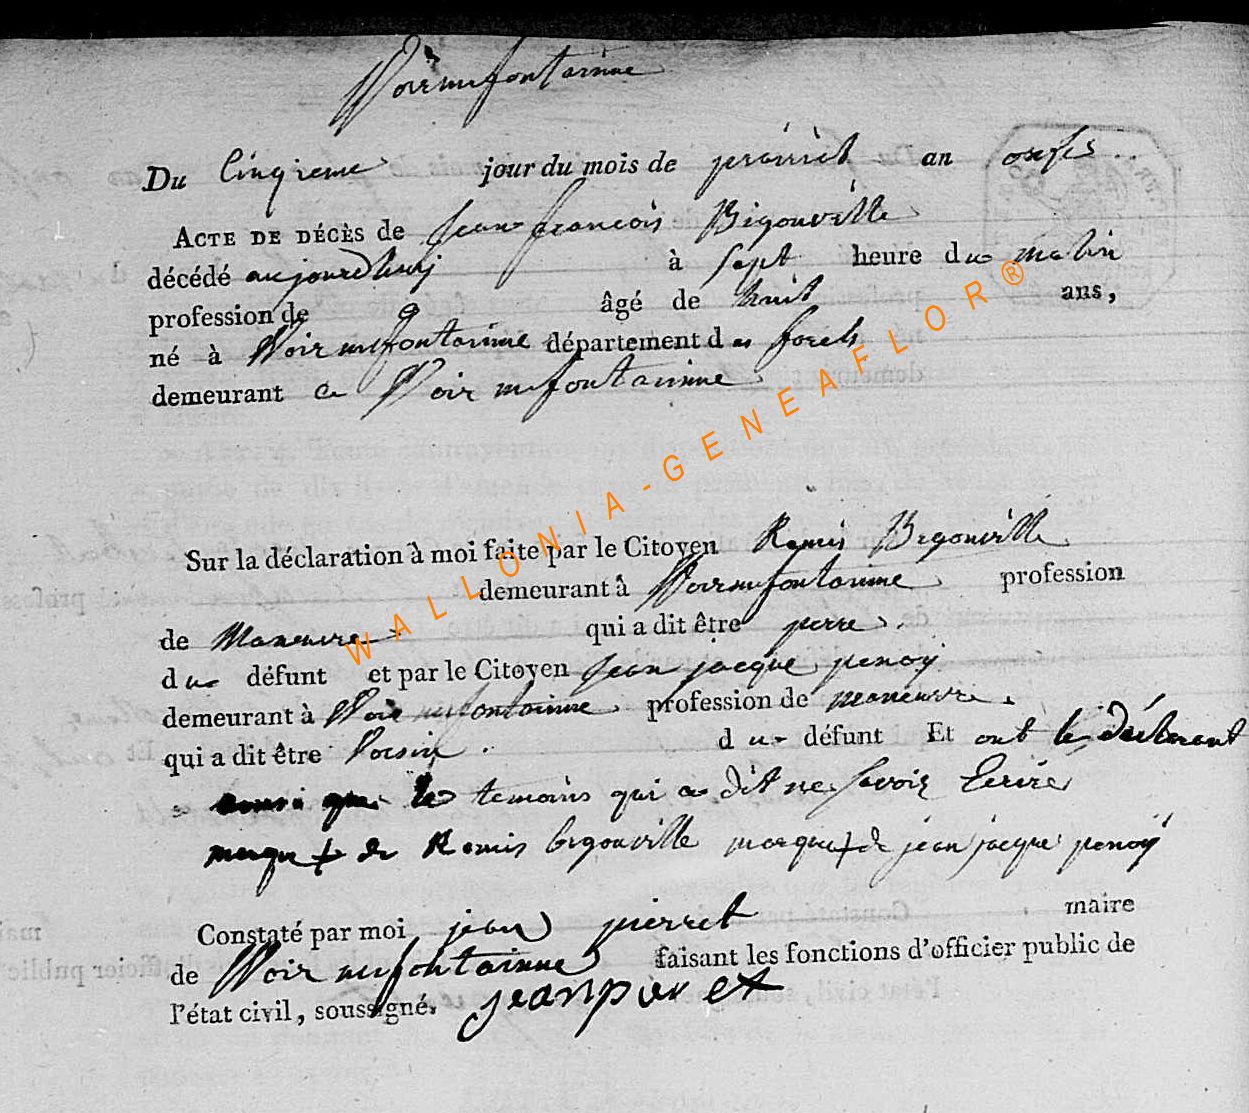 Woirmefontainne
Du Cinqieme jour du mois de prairiel an onse
ACTE DE DÉCÈS de Jean francois Bigonville
décédé aujourdhuij à sept heure du matin
profession de âgé de huit ans,
né à Woirmefontainne département des forets
demeurant a Woirmefontainne
Sur la déclaration à moi faite par le Citoyen Remis Bigonville
demeurant à Woirmefontainne profession
de Maneuvre qui a dit être perre
du défunt et par le Citoyen Jean jacque penoÿ
demeurant à Woirmefontainne profession de maneuvre.
qui a dit être Voisin. du défunt Et ont le déclarant
ainsi que le temoins qui a dit ne savoir Ecrire
marque + de Remis bigonville marque + de jean jacque penoÿ
Constaté par moi jean pierret maire
de Woirmefontainne faisant les fonctions d'officier public de
l'état civil, soussigné. jeanpieret
WALLONIA-GENEAFLOR®